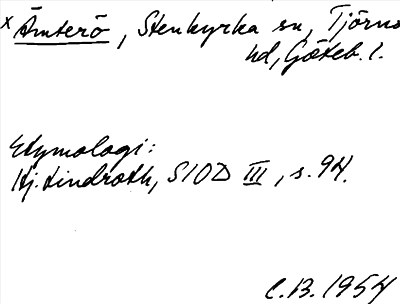 x Ämterö, Stenkyrka sn, Tjörns
hd, Göteb. l.
Etymologi:
Hj. Lindroth, SIOD III, s. 94.
C.B. 1954